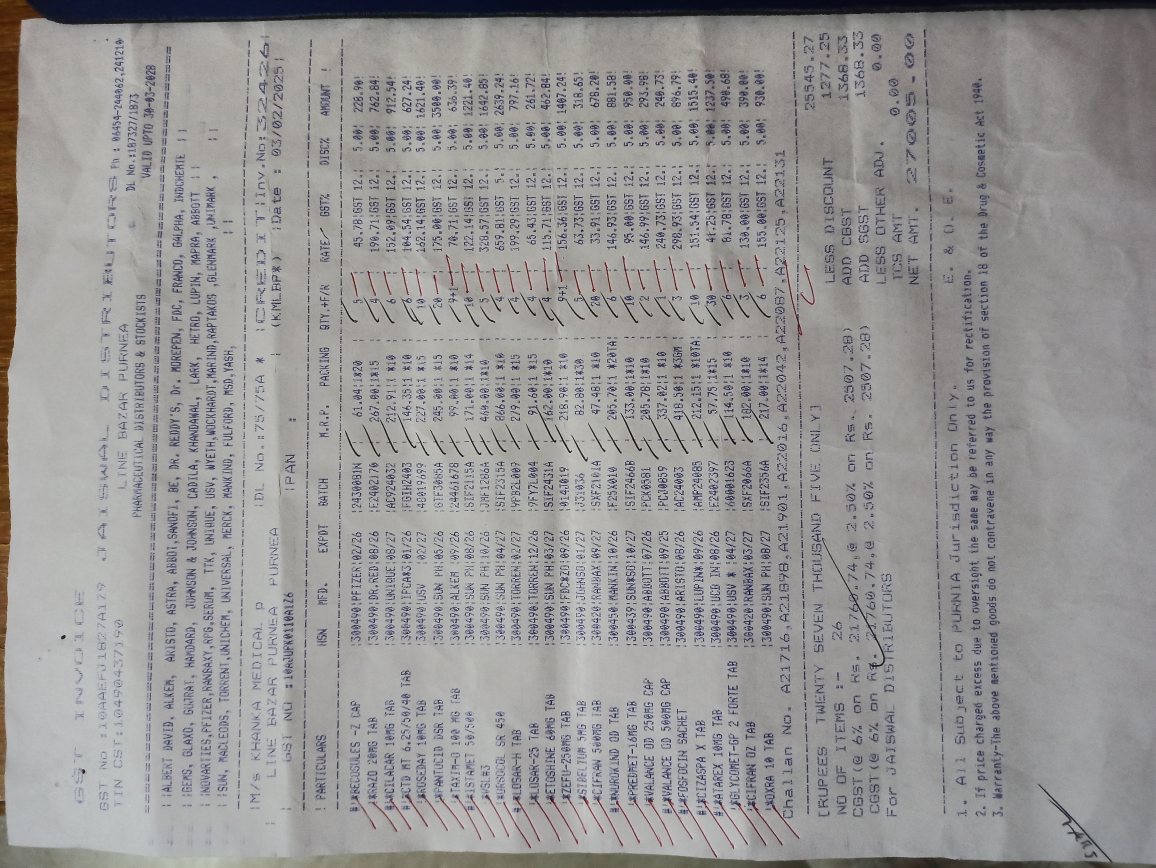 GST INVOICE
JAISWAL DISTRIBUTORS Ph : 06454-244062,241210
GST NO :10AAEFJ1827A1Z9 LINE BAZAR PURNEA DL No.:187327/1873
TIN CST:10490437190 PHARMACEUTICAL DISTRIBUTORS & STOCKISTS VALID UPTO 30-03-2028
ALBERT DAVID, ALKEM, ARISTO, ASTRA, ABBOT,SANOFI, BE, DR. REDDY'S, Dr. MOREPEN, FDC, FRANCO, GALPHA, INDOCHEMIE
GEMS, GLAXO, GUJRAT, HAMDARD, JOHNSON & JOHNSON, CADILA, KHANDAWAL, LARK, HETRO, LUPIN, MAPRA, ABBOTT
NOVARTIES,PFIZER,RANBAXY,RPG,SERUM, TTK, UNIQUE, USV, WYETH,WOCKHARDT,MARIND,RAPTAKOS ,GLENMARK ,UNIMARK ,
SUN, MACLEODS, TORRENT,UNICHEM, UNIVERSAL, MERCK, MANKIND, FULFORD, MSD,YASH,
M/s KHANKA MEDICAL P DL No.:75/75A * CREDIT Inv.No:32426
LINE BAZAR PURNEA PURNEA (KMLBP*) Date : 03/02/2025
GST NO :10AJUPK0110A1Z6 PAN :
PARTICULARS HSN MFD. EXPDT BATCH M.R.P. PACKING QTY.+F/R RATE/ GST% DISC% AMOUNT
BECOSULES -Z CAP 300490 PFIZER 02/26 2430081N 61.04 1*20 5 45.78 GST 12. 5.00 228.90
RAZO 20MG TAB 300490 DR.RED 08/26 E2402170 267.00 1*15 4 190.71 GST 12. 5.00 762.84
CILACAR 10MG TAB 300490 UNIQUE 08/27 AC924032 212.91 1 *10 6 152.09 GST 12. 5.00 912.54
CTD MT 6.25/50/40 TAB 300490 IPCA*3 01/26 146.35 1 *10 6 104.54 GST 12. 5.00 627.24
ROSEDAY 10MG TAB 300490 USV 02/27 227.00 1 *15 10 162.14 GST 12. 5.00 1621.40
PANTOCID DSR TAB 300490 SUN PH 05/26 245.00 1 *15 20 175.00 GST 12. 5.00 3500.00
TAXIM-O 100 MG TAB 300490 ALKEM 09/26 24461678 99.00 1 *10 9+1 70.71 GST 12. 5.00 636.39
ISTAMET 50/500 300490 SUN PH 08/26 SIF2115A 171.00 1 *14 10 122.14 GST 12. 5.00 1221.40
VSL#3 300490 SUN PH 10/26 JMF1286A 460.00 1*10 5 328.57 GST 12. 5.00 1642.85
URSOCOL SR 450 300490 SUN PH 04/27 SIF2315A 866.00 1 *15 4 659.81 GST 5. 5.00 2639.24
LOSAR-H TAB 300490 TORREN 02/27 9PB2L007 279.00 1 *15 4 199.29 GST 12. 5.00 797.16
LOSAR-25 TAB 300490 TORREN 12/26 9FY7L004 91.60 1 *15 4 65.43 GST 12. 5.00 261.72
BETOSHINE 40MG TAB 300490 SUN PH 03/27 SIF2431A 162.00 1*10 4 115.71 GST 12. 5.00 462.84
ZEFU-250MG TAB 300490 FDC*ZO 09/26 014J019 218.90 1 *10 9+1 156.36 GST 12. 5.00 1407.24
SIBELIUM 5MG TAB 300490 JOHNSO 01/27 J31036 82.80 1*30 5 63.73 GST 12. 5.00 318.65
CIFRAN 500MG TAB 300420 RANBAX 09/27 SXF2101A 47.48 1 *10 20 33.91 GST 12. 5.00 678.20
NUROKIND OD TAB 300450 MANKIN 10/26 205.70 1 *20TA 6 146.93 GST 12. 5.00 881.58
PREDMET-16MG TAB 300439 SUN*SO 10/27 SIF2466B 133.00 1*10 10 95.00 GST 12. 5.00 950.00
VALANCE OD 250MG CAP 300490 ABBOTT 07/26 PCX0581 205.78 1*10 2 146.99 GST 12. 5.00 293.98
VALANCE OD 500MG CAP 300490 ABBOTT 09/25 PCJ0859 337.02 1 *10 1 240.73 GST 12. 5.00 240.73
FOSFOCIN SACHET 300490 ARISTO 08/26 AC24003 418.50 1 *3GM 3 298.93 GST 12. 5.00 896.79
CIZASPA X TAB 300490 LUPIN* 09/26 AMP24085 212.15 1 *10TA 10 151.54 GST 12. 5.00 1515.40
ATAREX 10MG TAB 300490 UCB IN 08/26 E2402397 57.75 1*15 30 41.25 GST 12. 5.00 1237.50
GLYCOMET-GP 2 FORTE TAB 300490 USV * 04/27 60001623 114.50 1 *10 6 81.78 GST 12. 5.00 490.68
CIFRAN OZ TAB 300420 RANBAX 03/27 SXF2066A 182.00 1*10 3 130.00 GST 12. 5.00 390.00
OXRA 10 TAB 300490 SUN PH 08/27 SIF2356A 217.00 1*14 6 155.00 GST 12. 5.00 930.00
Challan No. A21716,A21898,A21901,A22016,A22042,A22087,A22125,A22131
25545.27
[RUPEES TWENTY SEVEN THOUSAND FIVE ONLY] LESS DISCOUNT 1277.25
NO OF ITEMS :- 26 ADD CGST 1368.33
CGST(@ 6% on Rs. 21760.74,@ 2.50% on Rs. 2507.28) ADD SGST 1368.33
CGST(@ 6% on Rs. 21760.74,@ 2.50% on Rs. 2507.28) LESS OTHER ADJ. 0.00
For JAISWAL DISTRIBUTORS TCS AMT 0.00
NET AMT. 27005.00
1. All Subject to PURNIA Jurisdiction Only. E. & O. E.
2. If price charged excess due to oversight the same may be referred to us for rectification.
3. Warranty-the above mentioned goods do not contravene in any way the provision of section 18 of the Drug & Cosmetic Act 1940.